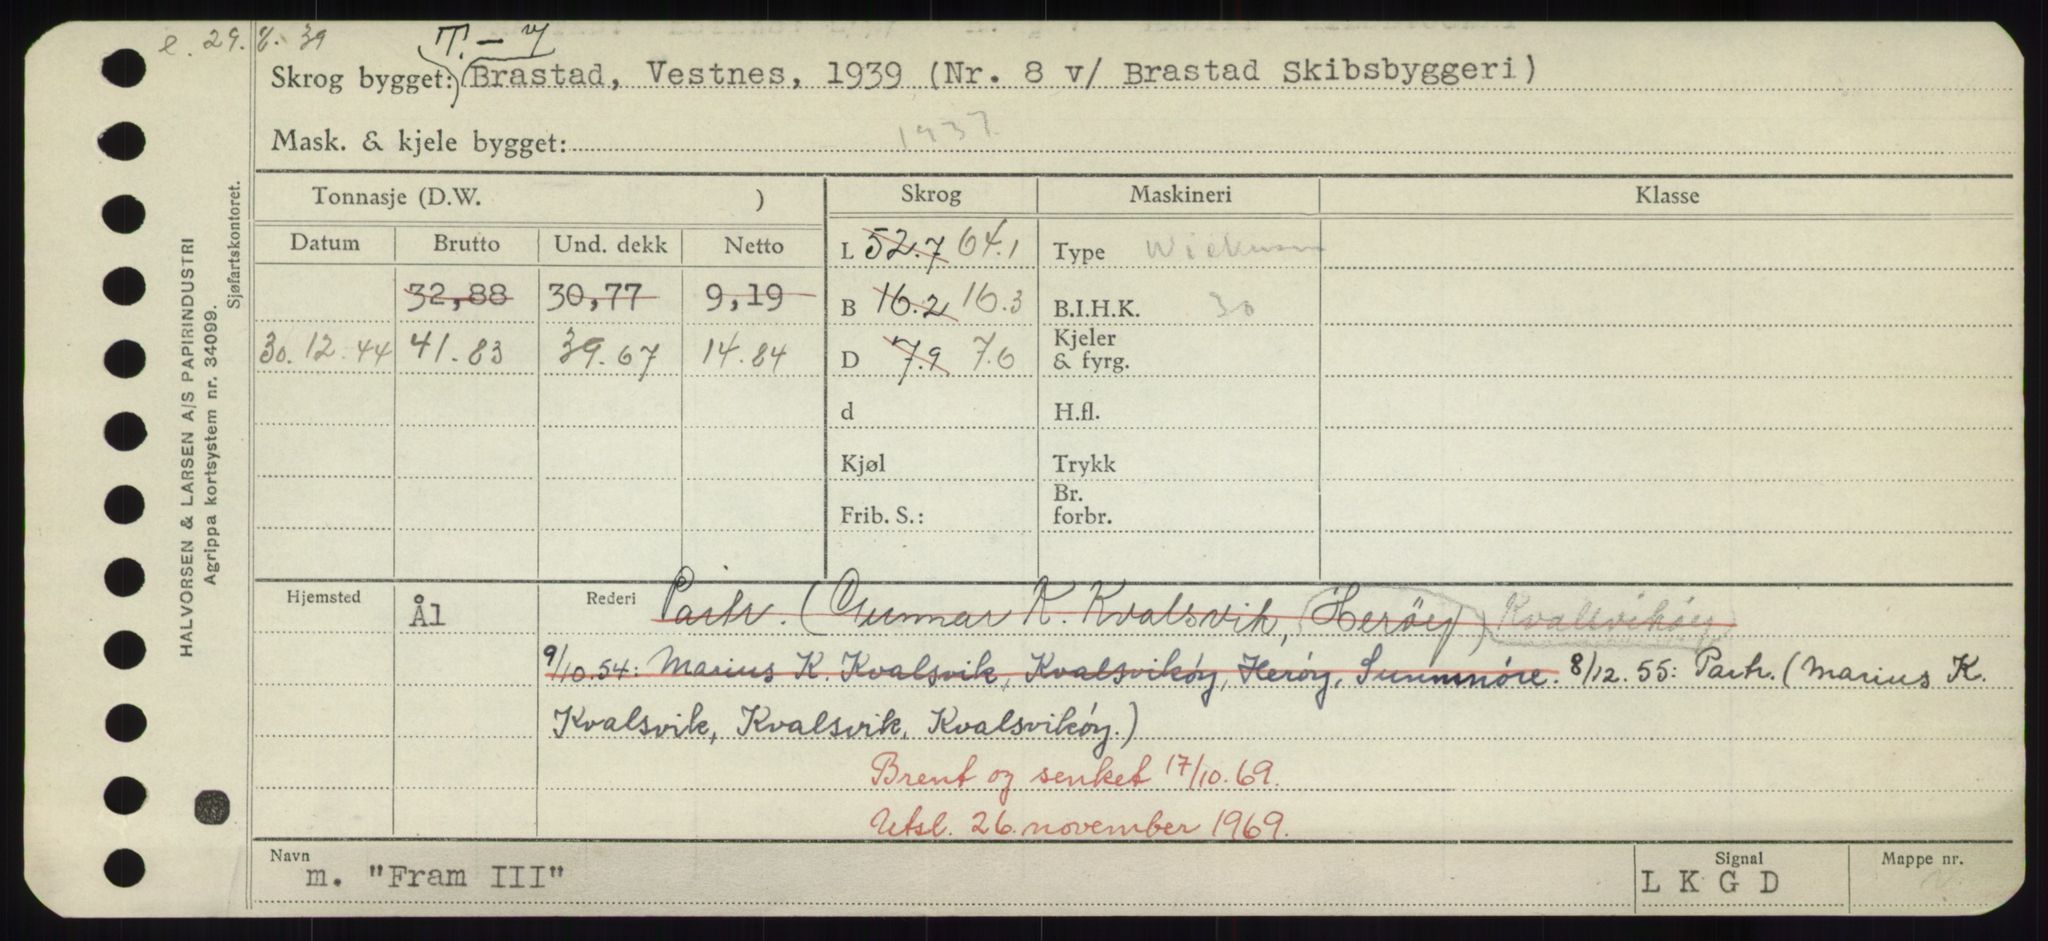 e. 29. 8. 39
T. - y
Skrog bygget: Brastad, Vestnes, 1939 (Nr. 8 v/ Brastad Skibsbyggeri)
Mask. & kjele bygget: 1937
Tonnasje (D.W. ) Skrog Maskineri Klasse
Datum Brutto Und. dekk Netto L 52.7 64.1 Type Wickman
32,88 30,77 9,19 B 16.2 16.3 B.I.H.K. 30
30.12.44 41.83 39.67 14.84 D 7.9 7.6 Kjeler & fyrg.
d H.fl.
Kjøl Trykk
Frib. S.: Br. forbr.
Hjemsted Ål Rederi Partr. (Gunnar K. Kvalsvik, Herøy) Kvalsvikøy
9/10.54: Marius K. Kvalsvik, Kvalsvikøy, Herøy, Sunnmöre. 8/12.55: Partr. (Marius K.
Kvalsvik, Kvalsvik, Kvalsvikøy.)
Brent og senket 17/10.69.
Utsl. 26. november 1969.
Navn Signal Mappe nr.
m. "Fram III" L K G D
HALVORSEN & LARSEN A/S PAPIRINDUSTRI
Agrippa kortsystem nr. 34099.
Sjøfartskontoret.